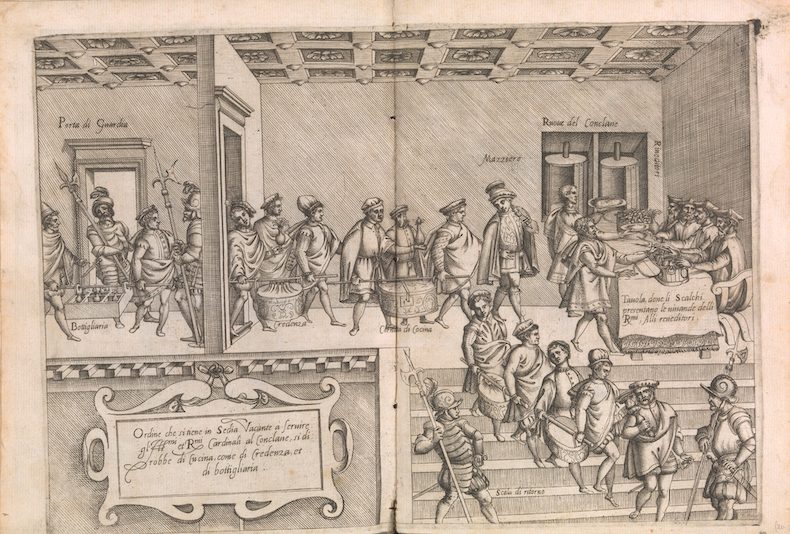 Porta di Guardia
Ruota del Conclaue
Mazziero
Bottigliaria
Credenza
Cornuta di Cocina
Tauola, doue li Scalchi
presentano le uiuande delli
Rmi, Alli reueditori
Ordine che si tiene in Sedia Vacante a seruire
gl' Illmi et Rmi Cardinali al Conclaue, si di
robbe di Cucina, come di Credenza, et
di bottigliaria.
Scala di ritorno